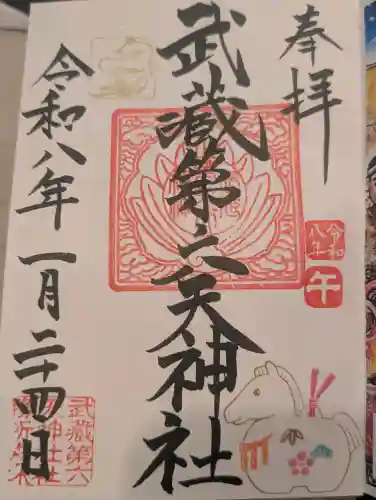 奉拝
令和
八年
午
武蔵第六天神社
令和八年 一月二十四日
武蔵第六